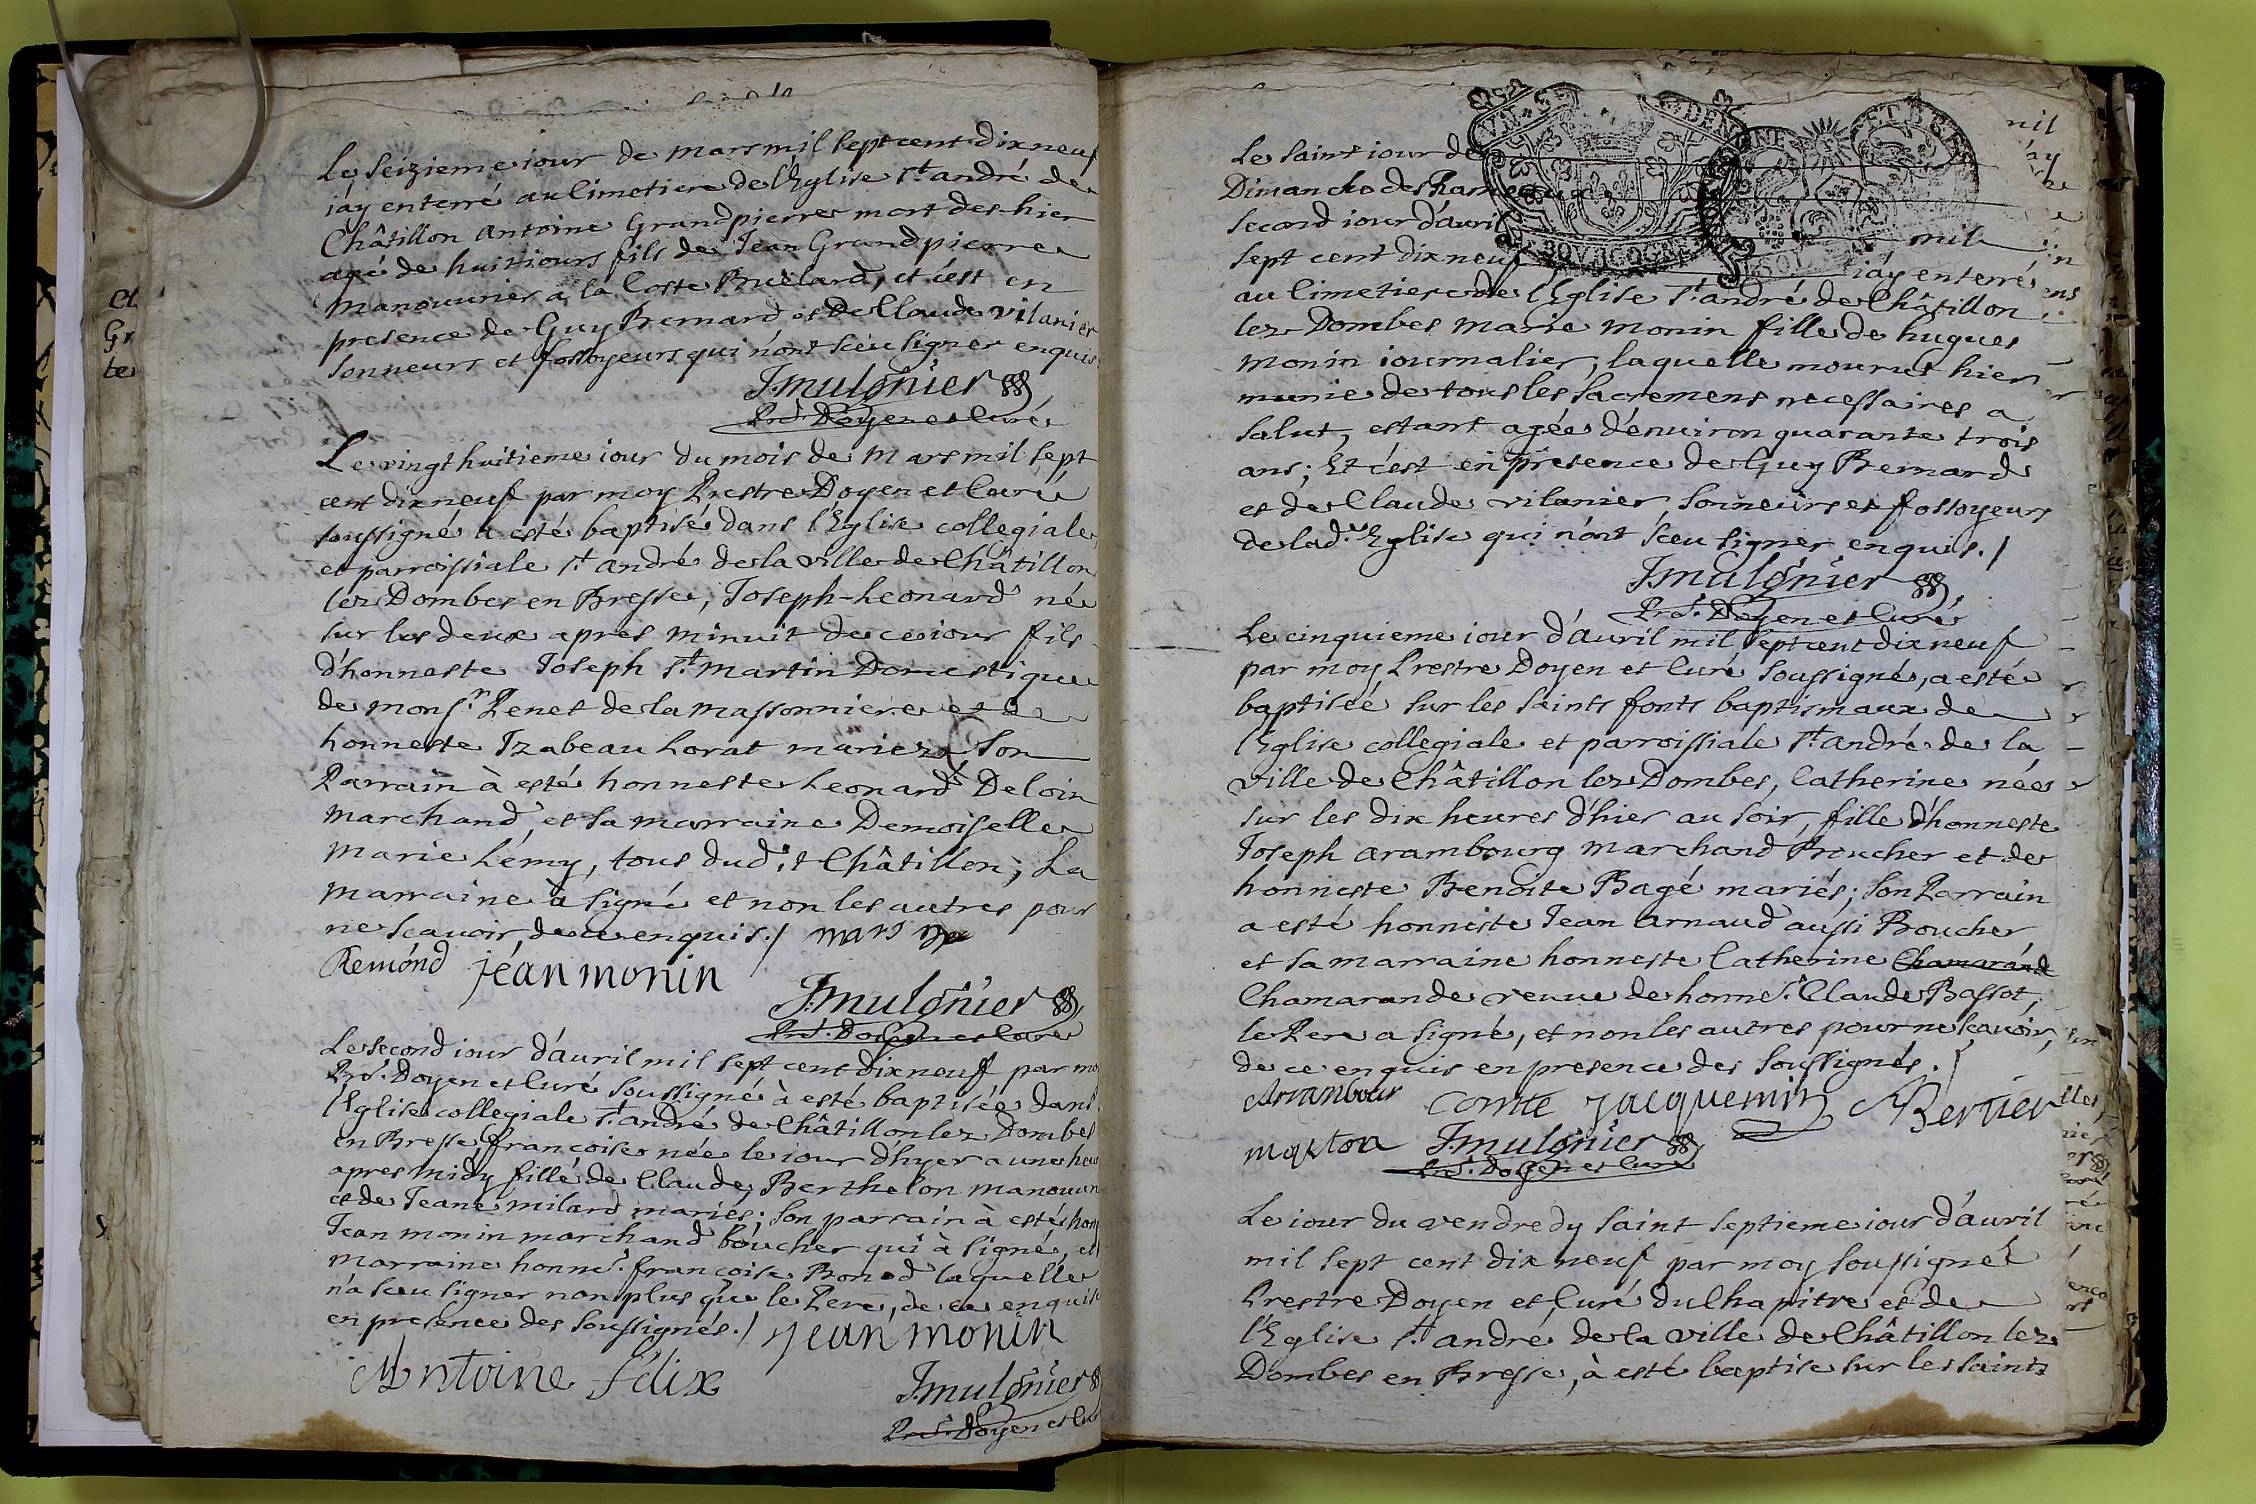 Le seizieme iour de mars mil sept cent dix neuf
iáy enterré au Cimetiere de l'Eglise st. andré de
Châtillon antoine Grandpierre mort des-hier
agé de huit iours fils de Jean Grandpierre
manouurier à la Coste Buëlard, et c'est en
presence de Guy Bernard et De Claude vilanier
sonneurs et fossoyeurs qui n'ont sceu signer enquis
J.mulgnier
Prê. Doyen et Curé
Le vingt huitieme iour du mois de mars mil sept
cent dix neuf par moy Prestre Doyen et Curé
soussigné à esté baptisé dans l'Eglise collegiale
et parroissiale st. andré de la ville de Châtillon
lez Dombes en Bresse, Joseph-Leonard né
sur les deux apres minuit de ce iour fils
d'honneste Joseph st. martin Domestique
de monsr. Penet de la massonniere et de
honneste Izabeau Lorat mariez, son
Parrain à esté honneste Leonard Deloin
marchand, et sa marraine Demoiselle
marie Lémy, tous dud.t Châtillon; La
marraine à signé et non les autres pour
ne scauoir, de ce enquis./
Remónd jéan monin
J.mulgnier
Prê. Doyen et Curé
Le second iour d'auril mil sept cent dix neuf, par mo
Prê. Doyen et Curé soussigné à esté baptisée dans
l'Eglise collegiale st. andré de Châtillon lez Dombes
en Bresse, françoise née le iour d'hyer a une heu
apres midy fille de Claude Berthelon manouur
et de Jeane milard mariés; son parrain à esté hon
Jean monin marchand boucher qui à signé, et
marraine honne. francoise Bonod laquelle
n'a sceu signer non plus que le Pere, de ce enquis
en presence des soussignés./ jean monin
Antoine félix
J.mulgnier
Prê. Doyen et Cur
Le saint iour de
Dimanche des Rameaux
second iour d'auril mil
sept cent dix neuf iáy enterré
au Cimetiere de l'Eglise st. andré de Châtillon
lez Dombes marie monin fille de hugues
monin iournalier, laquelle mourut hier
munie de tous les sacremens necessaires a
salut, estant agée d'enuiron quarante trois
ans; Et c'est en presence de Guy Bernard
et de Claude vilanier, sonneurs et fossoyeurs
de lad. Eglise qui n'ont sceu signer enquis./
J.mulgnier
Prê. Doyen et Curé
Le cinquieme iour d'auril mil sept cent dix neuf
par moy Prestre Doyen et Curé soussigné, a esté
baptisée sur les saints fonts baptismaux de
l'Eglise collegiale et parroissiale st. andré de la
ville de Châtillon lez Dombes, Catherine née
sur les dix heures d'hier au soir, fille d'honneste
Joseph arambourg marchand Boucher et de
honneste Benoite Bagé mariés; son Parrain
a esté honneste Jean arnaud aussi Boucher
et sa marraine honneste Catherine Chamarande
Chamarande veuue de honne. Claude Bassot,
le Pere a signé, et non les autres pour ne scauoir,
de ce enquis en presence des soussignés./
Arrambour Comte jacquemin Bervier
J.mulgnier
Prê. Doyen et Curé
Le iour du vendredy saint septieme iour d'auril
mil sept cent dix neuf par moy soussigné
Prestre Doyen et Curé du Chapitre et de
l'Eglise st. andré de la ville de Châtillon lez
Dombes en Bresse, à esté baptise sur les saints